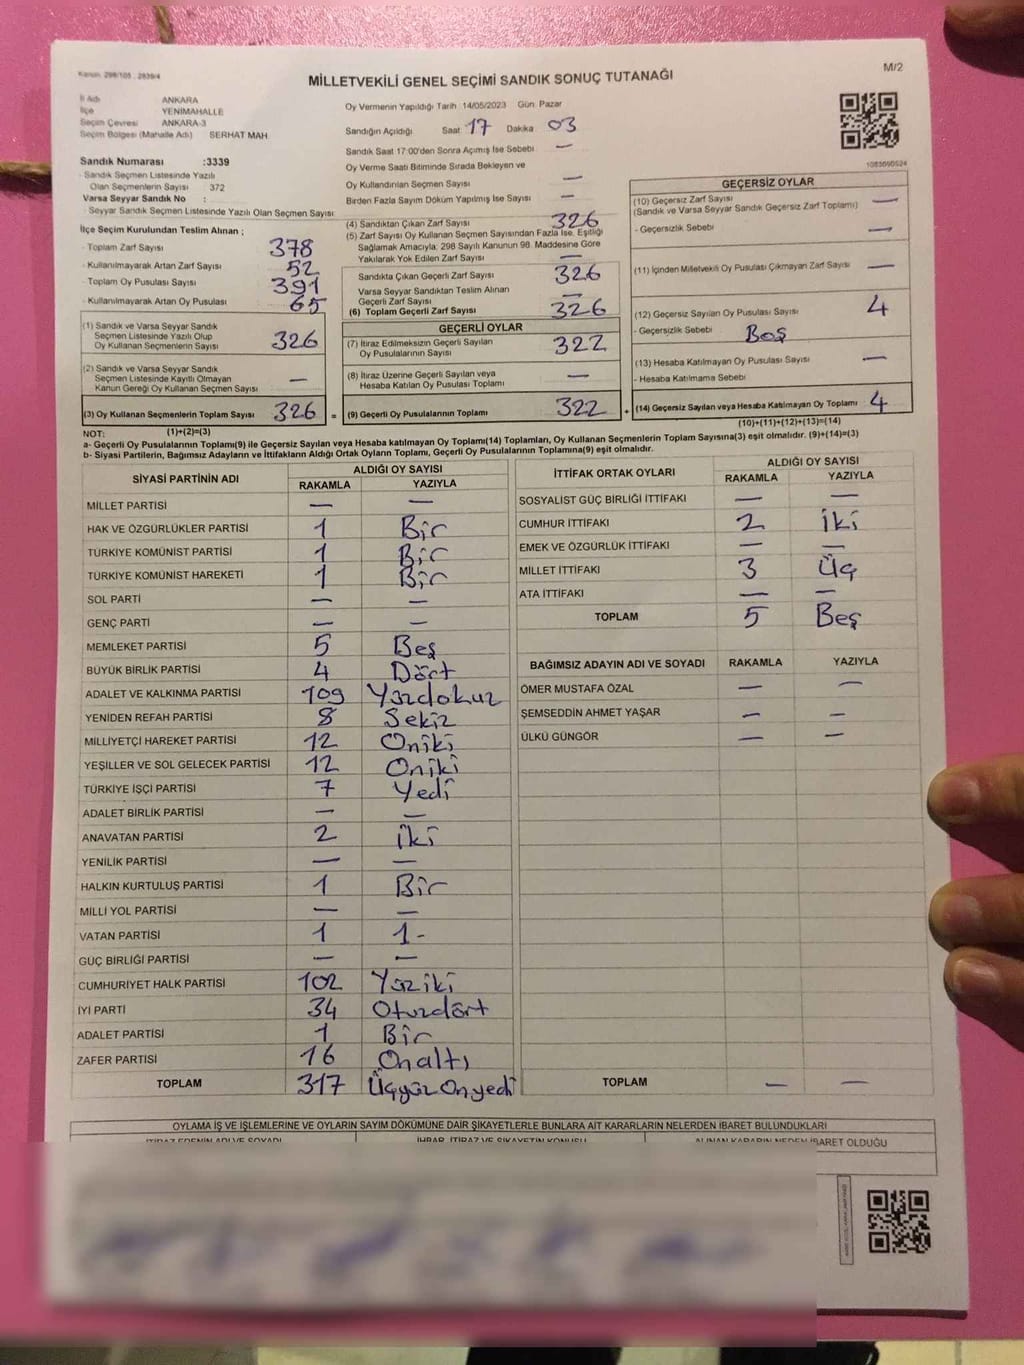 Kanun: 298/105 , 2839/4
M/2
MİLLETVEKİLİ GENEL SEÇİMİ SANDIK SONUÇ TUTANAĞI
İl Adı ANKARA
İlçe YENİMAHALLE
Seçim Çevresi ANKARA-3
Seçim Bölgesi (Mahalle Adı) SERHAT MAH
Sandık Numarası :3339
- Sandık Seçmen Listesinde Yazılı
Olan Seçmenlerin Sayısı 372
Varsa Seyyar Sandık No :
- Seyyar Sandık Seçmen Listesinde Yazılı Olan Seçmen Sayısı
İlçe Seçim Kurulundan Teslim Alınan ;
- Toplam Zarf Sayısı 378
- Kullanılmayarak Artan Zarf Sayısı 52
- Toplam Oy Pusulası Sayısı 391
- Kullanılmayarak Artan Oy Pusulası 65
(1) Sandık ve Varsa Seyyar Sandık
Seçmen Listesinde Yazılı Olup
Oy Kullanan Seçmenlerin Sayısı 326
(2) Sandık ve Varsa Seyyar Sandık
Seçmen Listesinde Kayıtlı Olmayan
Kanun Gereği Oy Kullanan Seçmen Sayısı —
(3) Oy Kullanan Seçmenlerin Toplam Sayısı 326 =
(1)+(2)=(3)
Oy Vermenin Yapıldığı Tarih 14/05/2023 Gün Pazar
Sandığın Açıldığı Saat 17 Dakika 03
Sandık Saat 17:00'den Sonra Açımış İse Sebebi —
Oy Verme Saati Bitiminde Sırada Bekleyen ve
Oy Kullandırılan Seçmen Sayısı —
Birden Fazla Sayım Döküm Yapılmış İse Sayısı —
(4) Sandıktan Çıkan Zarf Sayısı 326
(5) Zarf Sayısı Oy Kullanan Seçmen Sayısından Fazla İse, Eşitliği
Sağlamak Amacıyla; 298 Sayılı Kanunun 98. Maddesine Göre
Yakılarak Yok Edilen Zarf Sayısı —
Sandıkta Çıkan Geçerli Zarf Sayısı 326
Varsa Seyyar Sandıktan Teslim Alınan
Geçerli Zarf Sayısı —
(6) Toplam Geçerli Zarf Sayısı 326
GEÇERLİ OYLAR
(7) İtiraz Edilmeksizin Geçerli Sayılan
Oy Pusulalarının Sayısı 322
(8) İtiraz Üzerine Geçerli Sayılan veya
Hesaba Katılan Oy Pusulası Toplamı —
(9) Geçerli Oy Pusulalarının Toplamı 322 +
1083090524
GEÇERSİZ OYLAR
(10) Geçersiz Zarf Sayısı —
(Sandık ve Varsa Seyyar Sandık Geçersiz Zarf Toplamı)
- Geçersizlik Sebebi —
(11) İçinden Milletvekili Oy Pusulası Çıkmayan Zarf Sayısı —
(12) Geçersiz Sayılan Oy Pusulası Sayısı 4
- Geçersizlik Sebebi Boş
(13) Hesaba Katılmayan Oy Pusulası Sayısı —
- Hesaba Katılmama Sebebi
(14) Geçersiz Sayılan veya Hesaba Katılmayan Oy Toplamı 4
(10)+(11)+(12)+(13)=(14)
NOT:
a- Geçerli Oy Pusulalarının Toplamı(9) ile Geçersiz Sayılan veya Hesaba katılmayan Oy Toplamı(14) Toplamları, Oy Kullanan Seçmenlerin Toplam Sayısına(3) eşit olmalıdır. (9)+(14)=(3)
b- Siyasi Partilerin, Bağımsız Adayların ve İttifakların Aldığı Ortak Oyların Toplamı, Geçerli Oy Pusulalarının Toplamına(9) eşit olmalıdır.
SİYASİ PARTİNİN ADI ALDIĞI OY SAYISI
RAKAMLA YAZIYLA
MİLLET PARTİSİ — —
HAK VE ÖZGÜRLÜKLER PARTİSİ 1 Bir
TÜRKİYE KOMÜNİST PARTİSİ 1 Bir
TÜRKİYE KOMÜNİST HAREKETİ 1 Bir
SOL PARTİ — —
GENÇ PARTİ — —
MEMLEKET PARTİSİ 5 Beş
BÜYÜK BİRLİK PARTİSİ 4 Dört
ADALET VE KALKINMA PARTİSİ 109 Yüzdokuz
YENİDEN REFAH PARTİSİ 8 Sekiz
MİLLİYETÇİ HAREKET PARTİSİ 12 Oniki
YEŞİLLER VE SOL GELECEK PARTİSİ 12 Oniki
TÜRKİYE İŞÇİ PARTİSİ 7 Yedi
ADALET BİRLİK PARTİSİ — —
ANAVATAN PARTİSİ 2 İki
YENİLİK PARTİSİ — —
HALKIN KURTULUŞ PARTİSİ 1 Bir
MİLLİ YOL PARTİSİ — —
VATAN PARTİSİ 1 1-
GÜÇ BİRLİĞİ PARTİSİ — —
CUMHURİYET HALK PARTİSİ 102 Yüziki
İYİ PARTİ 34 Otuzdört
ADALET PARTİSİ 1 Bir
ZAFER PARTİSİ 16 Onaltı
TOPLAM 317 Üçyüz Onyedi
İTTİFAK ORTAK OYLARI ALDIĞI OY SAYISI
RAKAMLA YAZIYLA
SOSYALİST GÜÇ BİRLİĞİ İTTİFAKI — —
CUMHUR İTTİFAKI 2 İki
EMEK VE ÖZGÜRLÜK İTTİFAKI — —
MİLLET İTTİFAKI 3 Üç
ATA İTTİFAKI — —
TOPLAM 5 Beş
BAĞIMSIZ ADAYIN ADI VE SOYADI RAKAMLA YAZIYLA
ÖMER MUSTAFA ÖZAL — —
ŞEMSEDDİN AHMET YAŞAR — —
ÜLKÜ GÜNGÖR — —
TOPLAM — —
OYLAMA İŞ VE İŞLEMLERİNE VE OYLARIN SAYIM DÖKÜMÜNE DAİR ŞİKAYETLERLE BUNLARA AİT KARARLARIN NELERDEN İBARET BULUNDUKLARI
İTİRAZ EDENİN ADI VE SOYADI İHBAR, İTİRAZ VE ŞİKAYETİN KONUSU ALINAN KARARIN NEDEN İBARET OLDUĞU